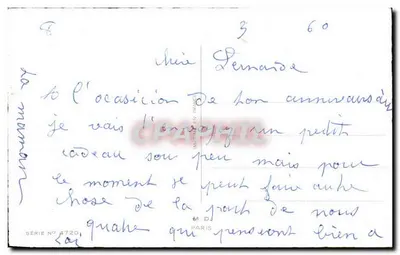 3 60
Fernande
A l'ocasicion de ton anniversaire
je vais t'envoyer un petit
cadeau peu mais pour
le moment je peut faire autre
chose de la part de nous
quatre qui pensiont bien a
toi
SERIE N° 4720
M D
PARIS
CPAPHIL.COM